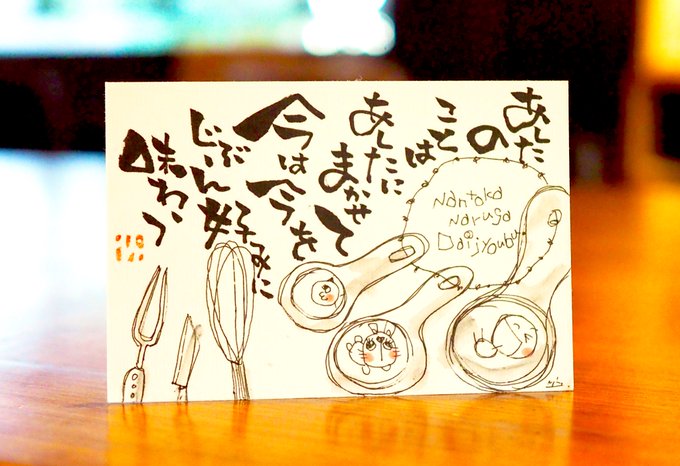 あした
の
ことは
あしたに
まかせて
今は今を
じぶん好みに
味わう
Nantoka
Narusa
Daijyoubu